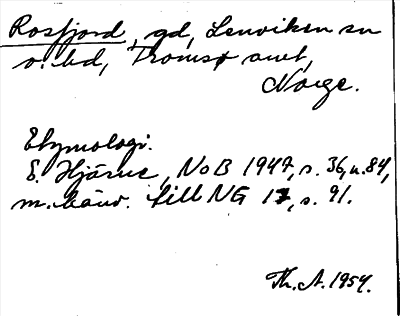 Rosfjord, gd, Lenviken sn
o. hd, Tromsø amt,
Norge.
Etymologi.
E. Hjärne, NoB 1947, s. 36, n. 84,
m. hänv. till NG 17, s. 91.
Th. A. 1954.